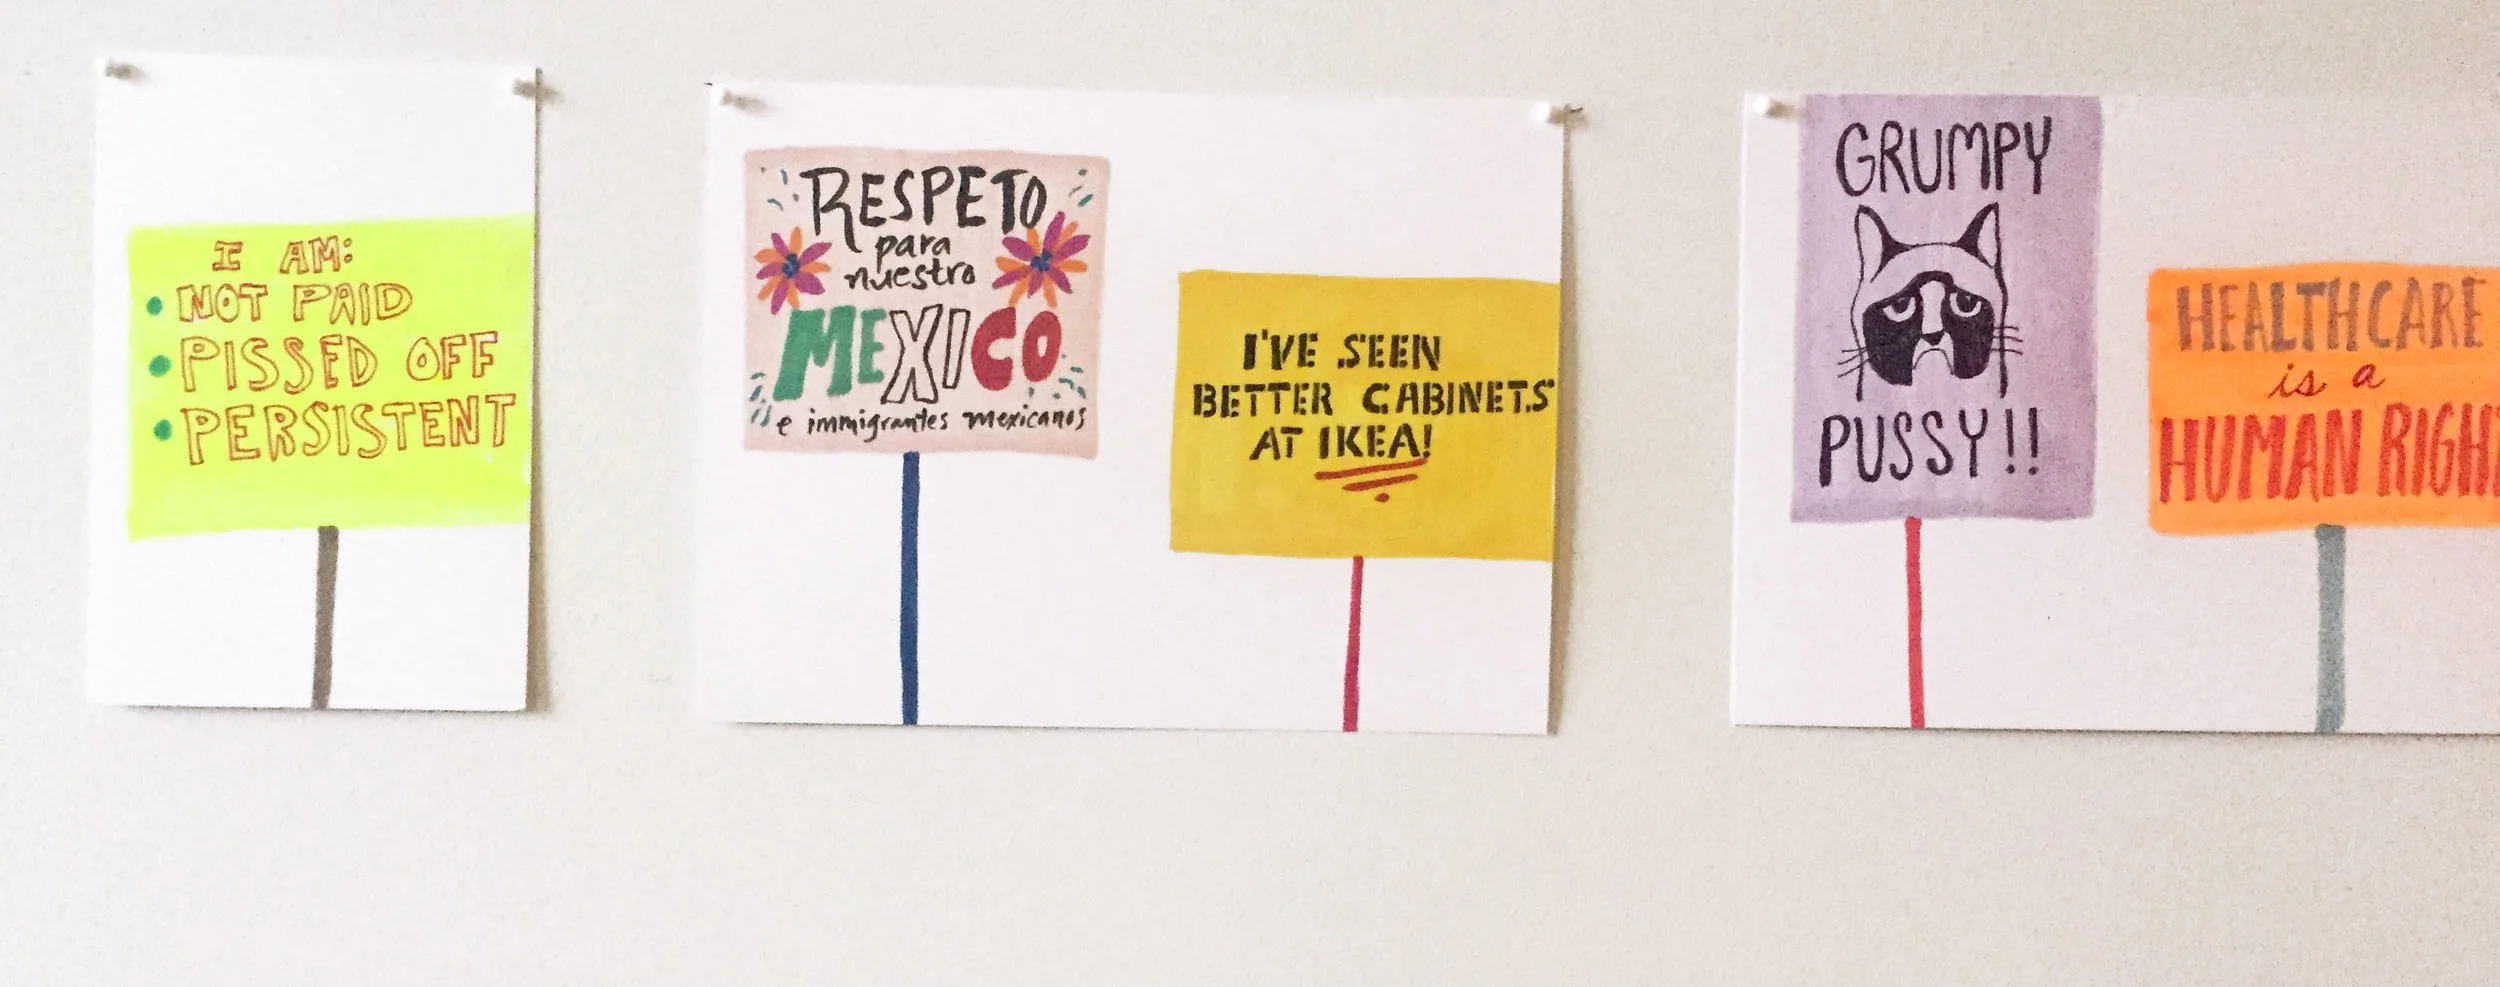 I AM:
• NOT PAID
• PISSED OFF
• PERSISTENT
RESPETO
para
nuestro
MEXICO
e immigrantes mexicanos
I'VE SEEN
BETTER CABINETS
AT IKEA!
GRUMPY
PUSSY!!
HEALTHCARE
is a
HUMAN RIGH